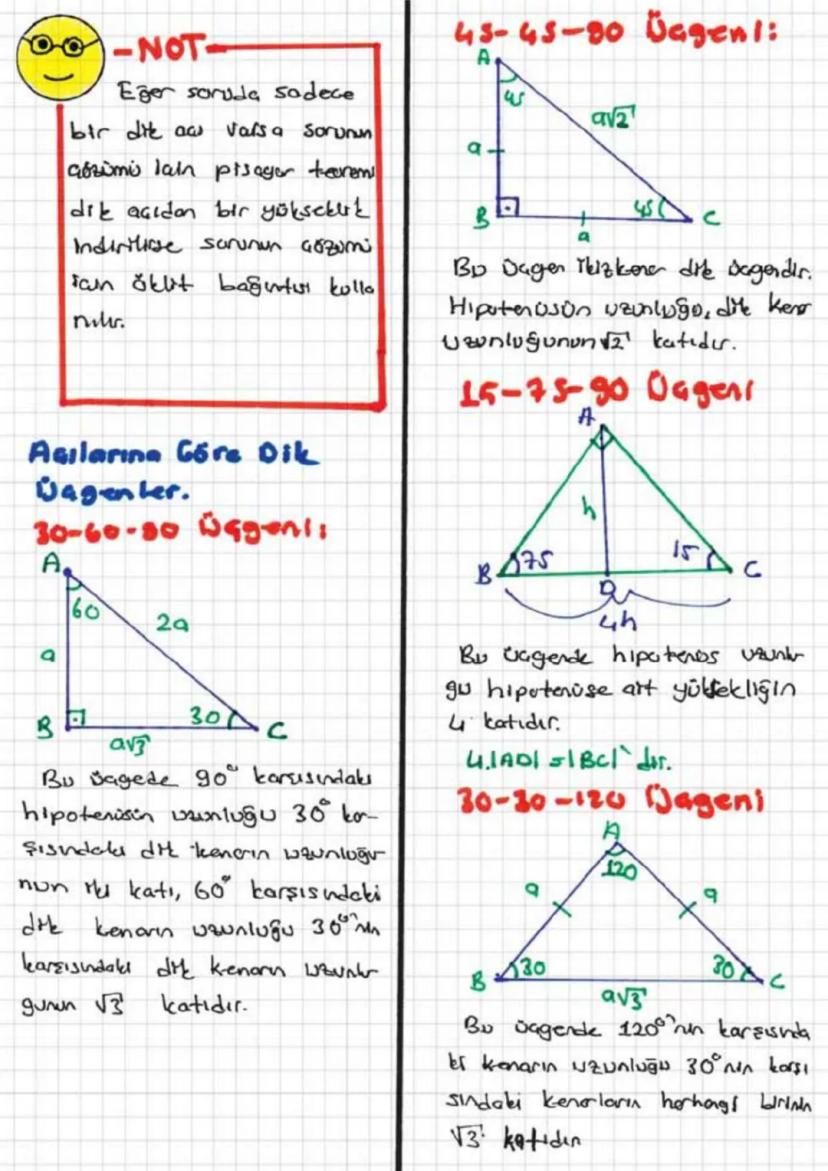 -NOT-
Eğer soruda sadece
bir dik açı varsa sorunun
çözümü için pisagor teoremi
dik açıdan bir yükseklik
indirilirse sorunun çözümü
için öklit bağıntısı kulla
nılır.
Açılarına Göre Dik
Üçgenler.
30-60-90 Üçgeni:
A
60
2a
a
B
30
C
a√3
Bu üçgede 90° karşısındaki
hipotenüsün uzunluğu 30° kar-
şısındaki dik kenarın uzunluğu-
nun iki katı, 60° karşısındaki
dik kenarın uzunluğu 30°'nin
karşısındaki dik kenarın uzunlu-
ğunun √3 katıdır.
45-45-90 Üçgeni:
A
45
a√2
a
B
45
C
a
Bu üçgen ikizkenar dik üçgendir.
Hipotenüsün uzunluğu, dik kenar
uzunluğunun √2 katıdır.
15-75-90 Üçgeni
A
h
B
75
15
C
D
4h
Bu üçgende hipotenüs uzunlu
ğu hipotenüse ait yüksekliğin
4 katıdır.
4.|AD|=|BC|'dır.
30-30-120 Üçgeni
A
120
a
a
B
30
30
C
a√3
Bu üçgende 120°'nin karşısında
ki kenarın uzunluğu 30°'nin karşı
sındaki kenarların herhangi birinin
√3 katıdır